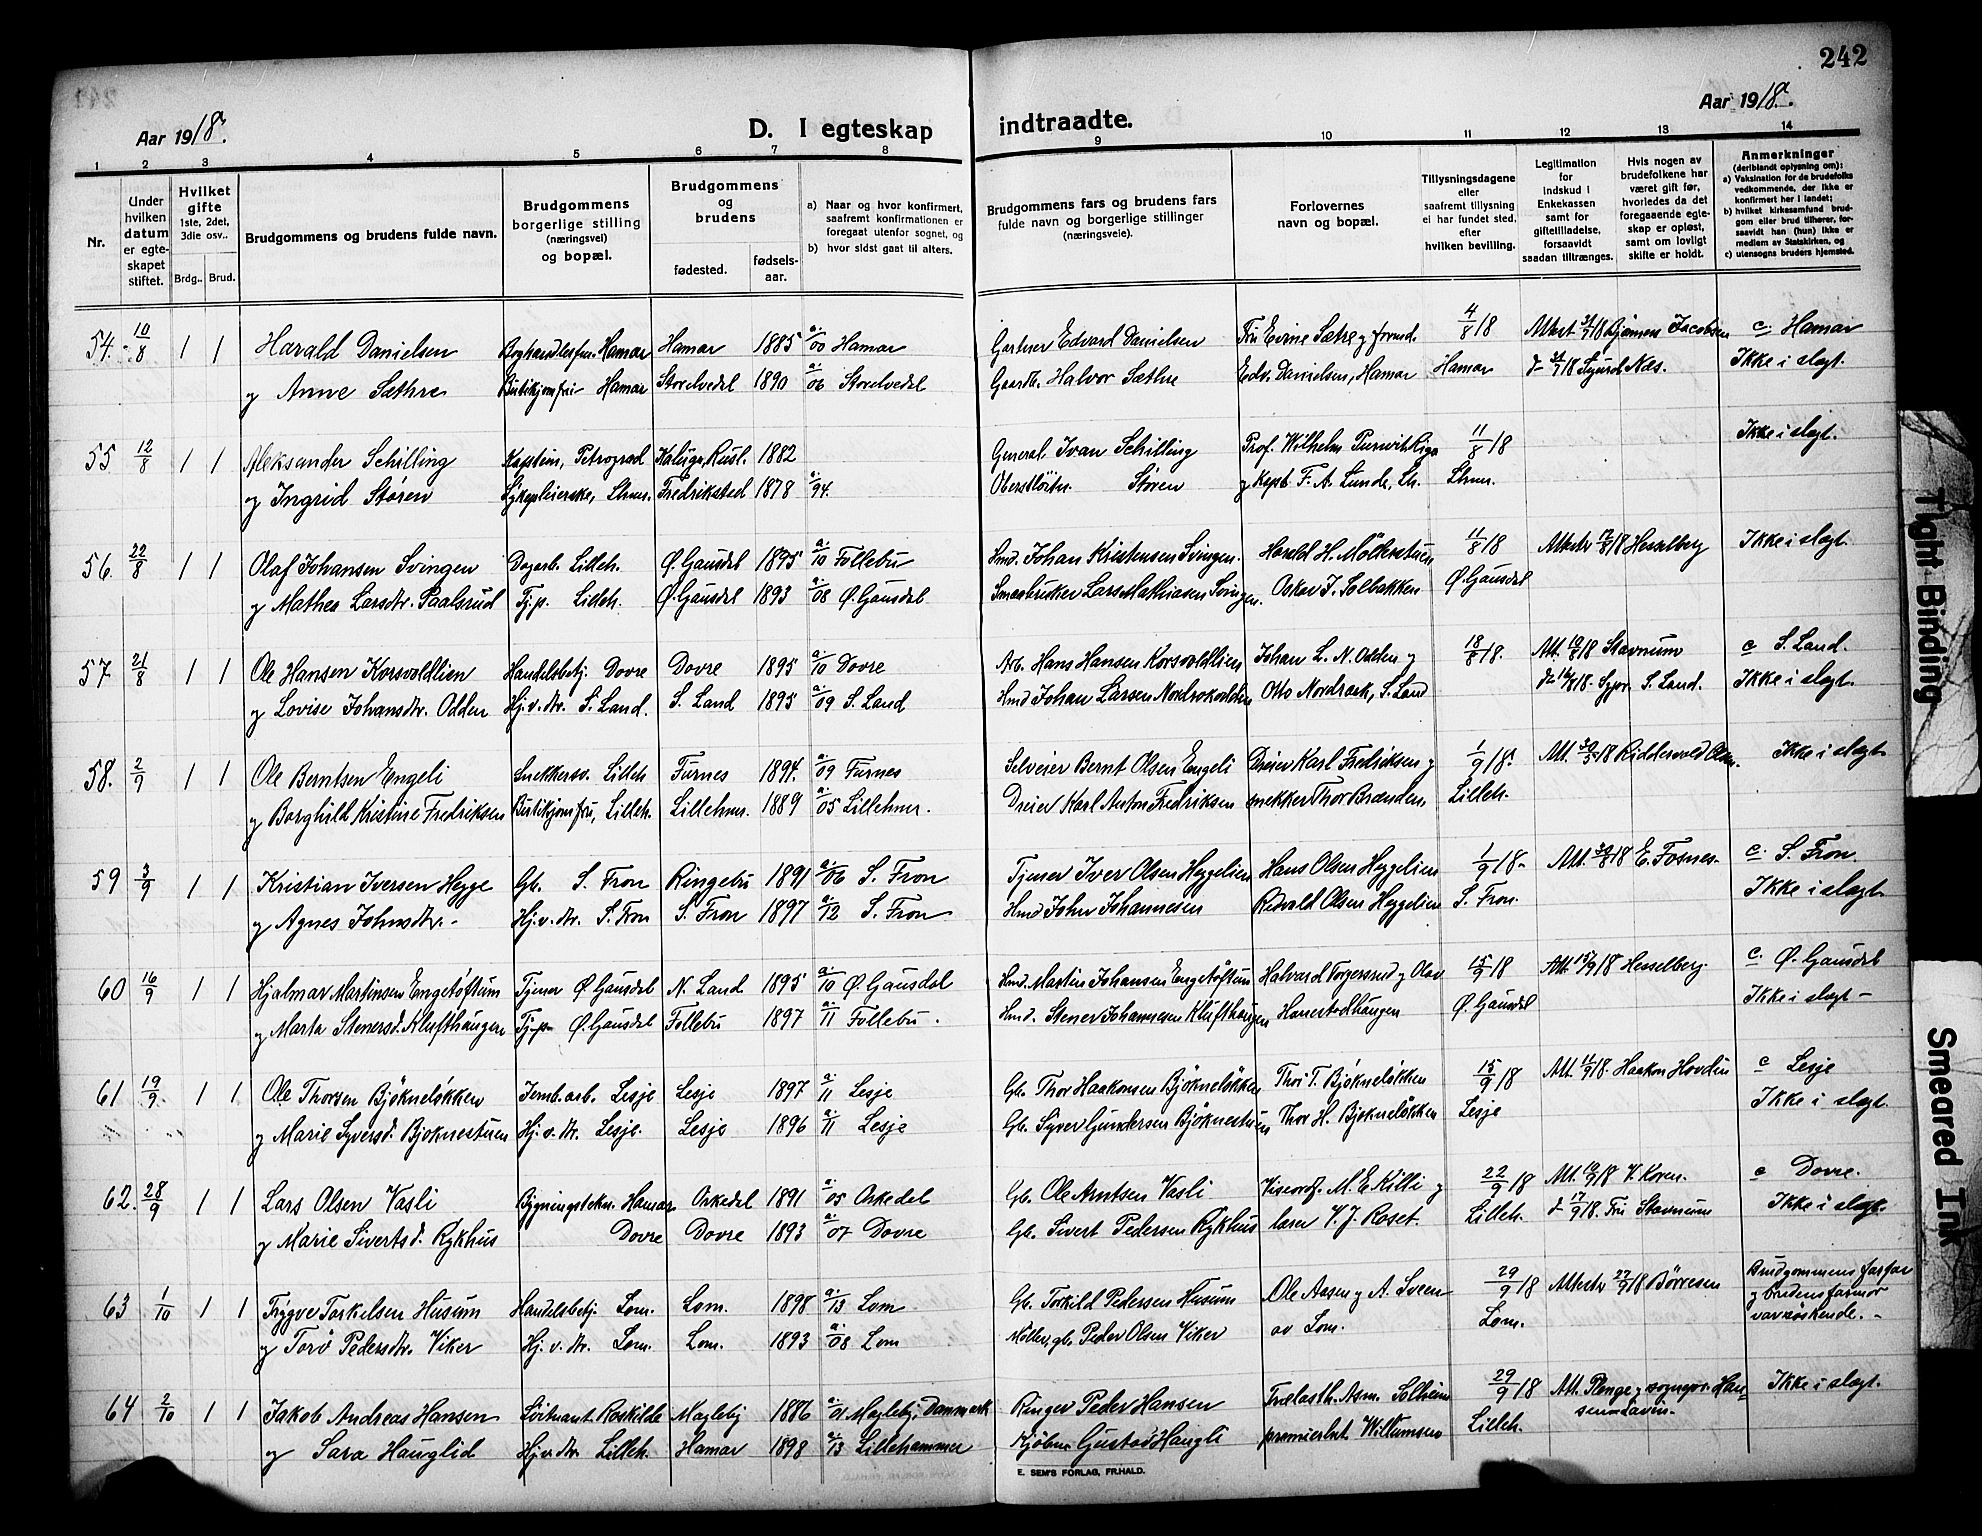 242
Aar 1918.
D. I egteskap indtraadte.
Aar 1918.
1 2 3 4 5 6 7 8 9 10 11 12 13 14
Nr.
Under hvilken datum er egteskapet stiftet.
Hvilket gifte 1ste, 2det, 3die osv..
Brdg.. Brud.
Brudgommens og brudens fulde navn.
Brudgommens borgerlige stilling (næringsvei) og bopæl.
Brudgommens og brudens
fødested. fødselsaar.
a) Naar og hvor konfirmert, saafremt konfirmationen er foregaat utenfor sognet, og
b) hvor sidst gaat til alters.
Brudgommens fars og brudens fars fulde navn og borgerlige stillinger (næringsveie).
Forlovernes navn og bopæl.
Tillysningsdagene eller saafremt tillysning ei har fundet sted, efter hvilken bevilling.
Legitimation for indskud i Enkekassen samt for giftetilladelse, forsaavidt saadan tiltrænges.
Hvis nogen av brudefolkene har været gift før, hvorledes da det foregaaende egteskap er opløst, samt om lovligt skifte er holdt.
Anmerkninger (deriblandt oplysning om):
a) Vaksination for de brudefolks vedkommende, der ikke er konfirmert her i landet;
b) hvilket kirkesamfund brudgom eller brud tilhører, forsaavidt han (hun) ikke er medlem av Statskirken, og
c) utensogns bruders hjemsted.
54. 10/8 1 1 Harald Danielsen Hamar Hamar 1885 a. 00 Hamar Gartner Edvard Danielsen 4/8 18 Jacobsen c. Hamar
og Anne Sæthre Hamar Storelvedal 1890 a. 06 Storelvedal Gaardb. Halvor Sæthre Edv. Danielsen, Hamar Hamar Sigurd Næs. Ikke i slegt.
55 12/8 1 1 Aleksander Schilling Kaptein, Petrograd Kaluga, Rusl. 1882 General Ivan Schilling Prof. Wilhelm Purwit Riga 11/8 18 Ikke i slegt.
og Ingrid Støren Sykepleierske, Lhmr. Fredrikstad 1878 a. 94. Oberstløitn. Støren og Kapt. F. A. Lunde, Lh. Lhmr.
56. 22/8 1 1 Olaf Johansen Svingen Dagarb. Lilleh. Ø. Gausdal 1895 a. 10 Follebu Hmd. Johan Kristensen Svingen. Harald H. Møllerstuen 11/8 18 Hesselberg Ikke i slegt.
og Mathea Larsdtr. Paalsrud Tj.p. Lilleh. Ø. Gausdal 1893 a. 08 Ø. Gausdal Smaabruker Lars Mathiasen Svingen. Oskar J. Solbakken Ø. Gausdal
57. 21/8 1 1 Ole Hansen Korsvoldlien Handelsbetj. Dovre Dovre 1895 a. 10 Dovre Arb. Hans Hansen Korsvoldlien Johan L. N. Odden og 18/8 18. Stavnum c S. Land.
og Lovise Johansdtr. Odden Hj.v. dtr. S. Land. S. Land 1895 a. 09 S. Land Hmd Johan Larsen Nordraakodden Otto Nordraak, S. Land S. Land. Ikke i slegt.
58. 2/9 1 1 Ole Berntsen Engeli Snekkersv. Lilleh Furnes 1894. a. 09 Furnes Selveier Bernt Olsen Engeli Dreier Karl Fredriksen og 1/9 18. Riddervold Olsen. Ikke i slegt
og Borghild Kristine Fredriksen Lilleh. Lillehmr. 1889 a. 05 Lillehmr. Dreier Karl Anton Fredriksen snekker Thor Brænden Lilleh.
59 3/9 1 1 Kristian Iversen Hegge Gb. S. Fron Ringebu 1891 a. 06 S. Fron Tjener Iver Olsen Heggelien Hans Olsen Heggelien 1/9 18. E. Fosnes. c. S. Fron.
og Agnes Johnsdtr. Hj.v. dtr. S. Fron S. Fron 1897 a. 12 S. Fron Hmd John Johannesen Redvald Olsen Heggelien S. Fron. Ikke i slegt.
60 16/9 1 1 Hjalmar Martinsen Engetøftum Tjener Ø. Gausdal N. Land 1895 a. 10 Ø. Gausdal Hmd. Martin Johansen Engetøftum Halvard Forgersrud og Olav 15/9 18 Att. 15/9 18 Hesselberg c. Ø. Gausdal
og Marta Stenersd. Klufthaugen Tj.p. Ø. Gausdal Follebu 1897 a. 11 Follebu. Hmd. Stener Johannesen Klufthaugen Ø. Gausdal Ikke i slegt
61 19/9. 1 1 Ole Thorsen Bjøkneløkken Jernb.arb. Lesje Lesje 1897 a. 11 Lesje Gb. Thor Haakonsen Bjøkneløkken Thor T. Bjøkneløkken 15/9 18 Att. 11/9 18. Haakon Hovden c Lesje
og Marie Syversd. Bjøknestuen Hj.v. dtr. Lesje. Lesje 1896 a. 11 Lesje Gb. Syver Gundersen Bjøknestuen Thor H. Bjøkneløkken Lesje Ikke i slegt.
62. 28/9 1 1 Lars Olsen Vasli Bygningstekn. Hamar Orkedal 1891 a. 05 Orkedal Gb. Ole Arntsen Vasli M. E. Killi og 22/9 18 V. Koren. c Dovre.
og Marie Sivertsd. Rykhus Dovre Dovre 1893 a. 07 Dovre Gb. Sivert Pedersen Rykhus lærer V. J. Roset. Lilleh. Stavnum Ikke i slegt.
63 1/10 1 1 Trygve Torkelsen Husum Handelsbetj. Lom. Lom. 1898 a. 13 Lom Gb. Torkild Pedersen Husum Ole Aasen og A. Sveen 29/9 18 Børresen Brudgommens farfar
og Torø Pedersdtr. Viker Hj.v. dtr. Lom. Lom. 1893 a. 08 Lom Møller, gb. Peder Olsen Viker av Lom. Lom. og brudens farmor var søskende.
64 2/10 1 1 Jakob Andreas Hansen Løitnant Roskilde Magleby 1886 a. 01 Magleby, Danmark Ringer Peder Hansen Asm. Solheim 29/9 18 Att. Plenge og sognepr. Hansen Ikke i slegt.
og Sara Hauglid Hj.v. dtr. Lilleh. Hamar 1898 a. 13 Lillehammer Kjøbm. Gustav Haugli premierlnt. Willumsen Lilleh.
E. SEM'S FORLAG, FR.HALD.
Tight Binding
Smeared Ink